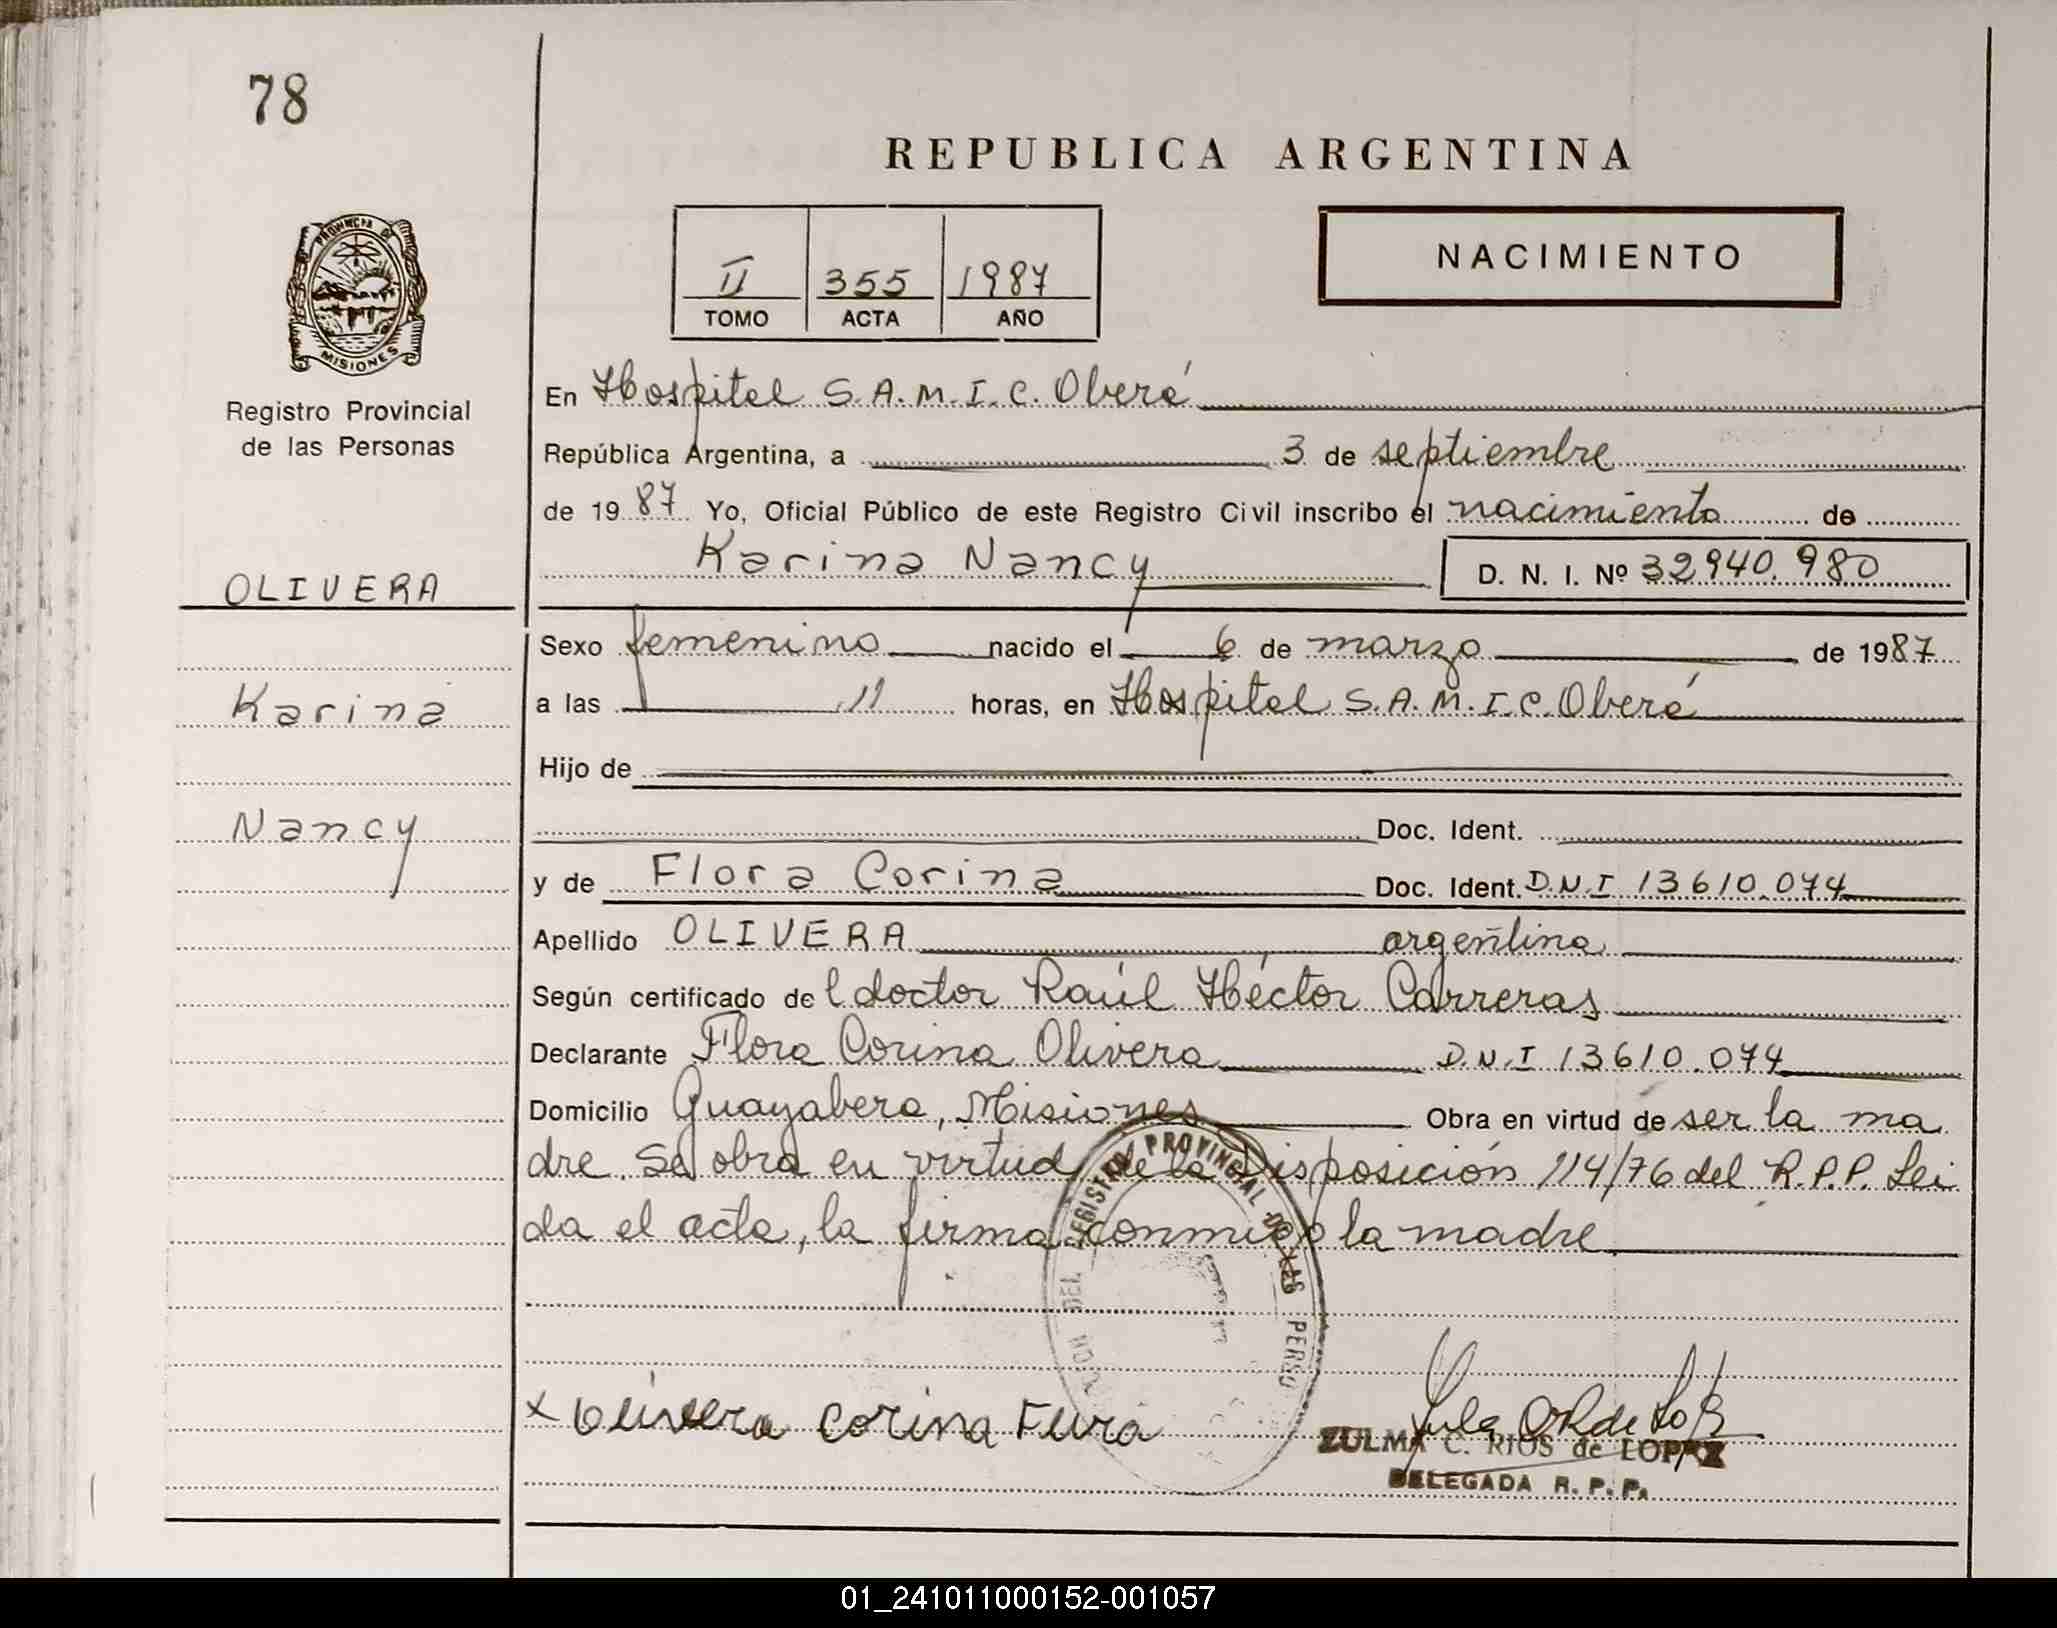 78
REPUBLICA ARGENTINA
PROVINCIA DE
MISIONES
II 355 1987
TOMO ACTA AÑO
NACIMIENTO
Registro Provincial
de las Personas
En Hospital S.A.M.I.C. Oberá
República Argentina, a 3 de septiembre
de 1987 Yo, Oficial Público de este Registro Civil inscribo el nacimiento de
Karina Nancy D. N. I. Nº 32940.980
OLIVERA
Karina
Nancy
Sexo femenino nacido el 6 de marzo de 1987
a las 11 horas, en Hospital S.A.M.I.C. Oberá
Hijo de
Doc. Ident.
y de Flora Corina Doc. Ident. D.N.I 13610.074
Apellido OLIVERA argentina
Según certificado del doctor Raúl Héctor Carreras
Declarante Flora Corina Olivera D.N.I 13610.074
Domicilio Guayabera, Misiones Obra en virtud de ser la ma
dre. Se obra en virtud de la Disposición 114/76 del R.P.P. Lei
da el acta, la firma conmigo la madre
DEL REGISTRO PROVINCIAL DE LAS PERSO
x Olivera Corina Flura
ZULMA C. RIOS de LOPEZ
DELEGADA R. P. P.
01_241011000152-001057